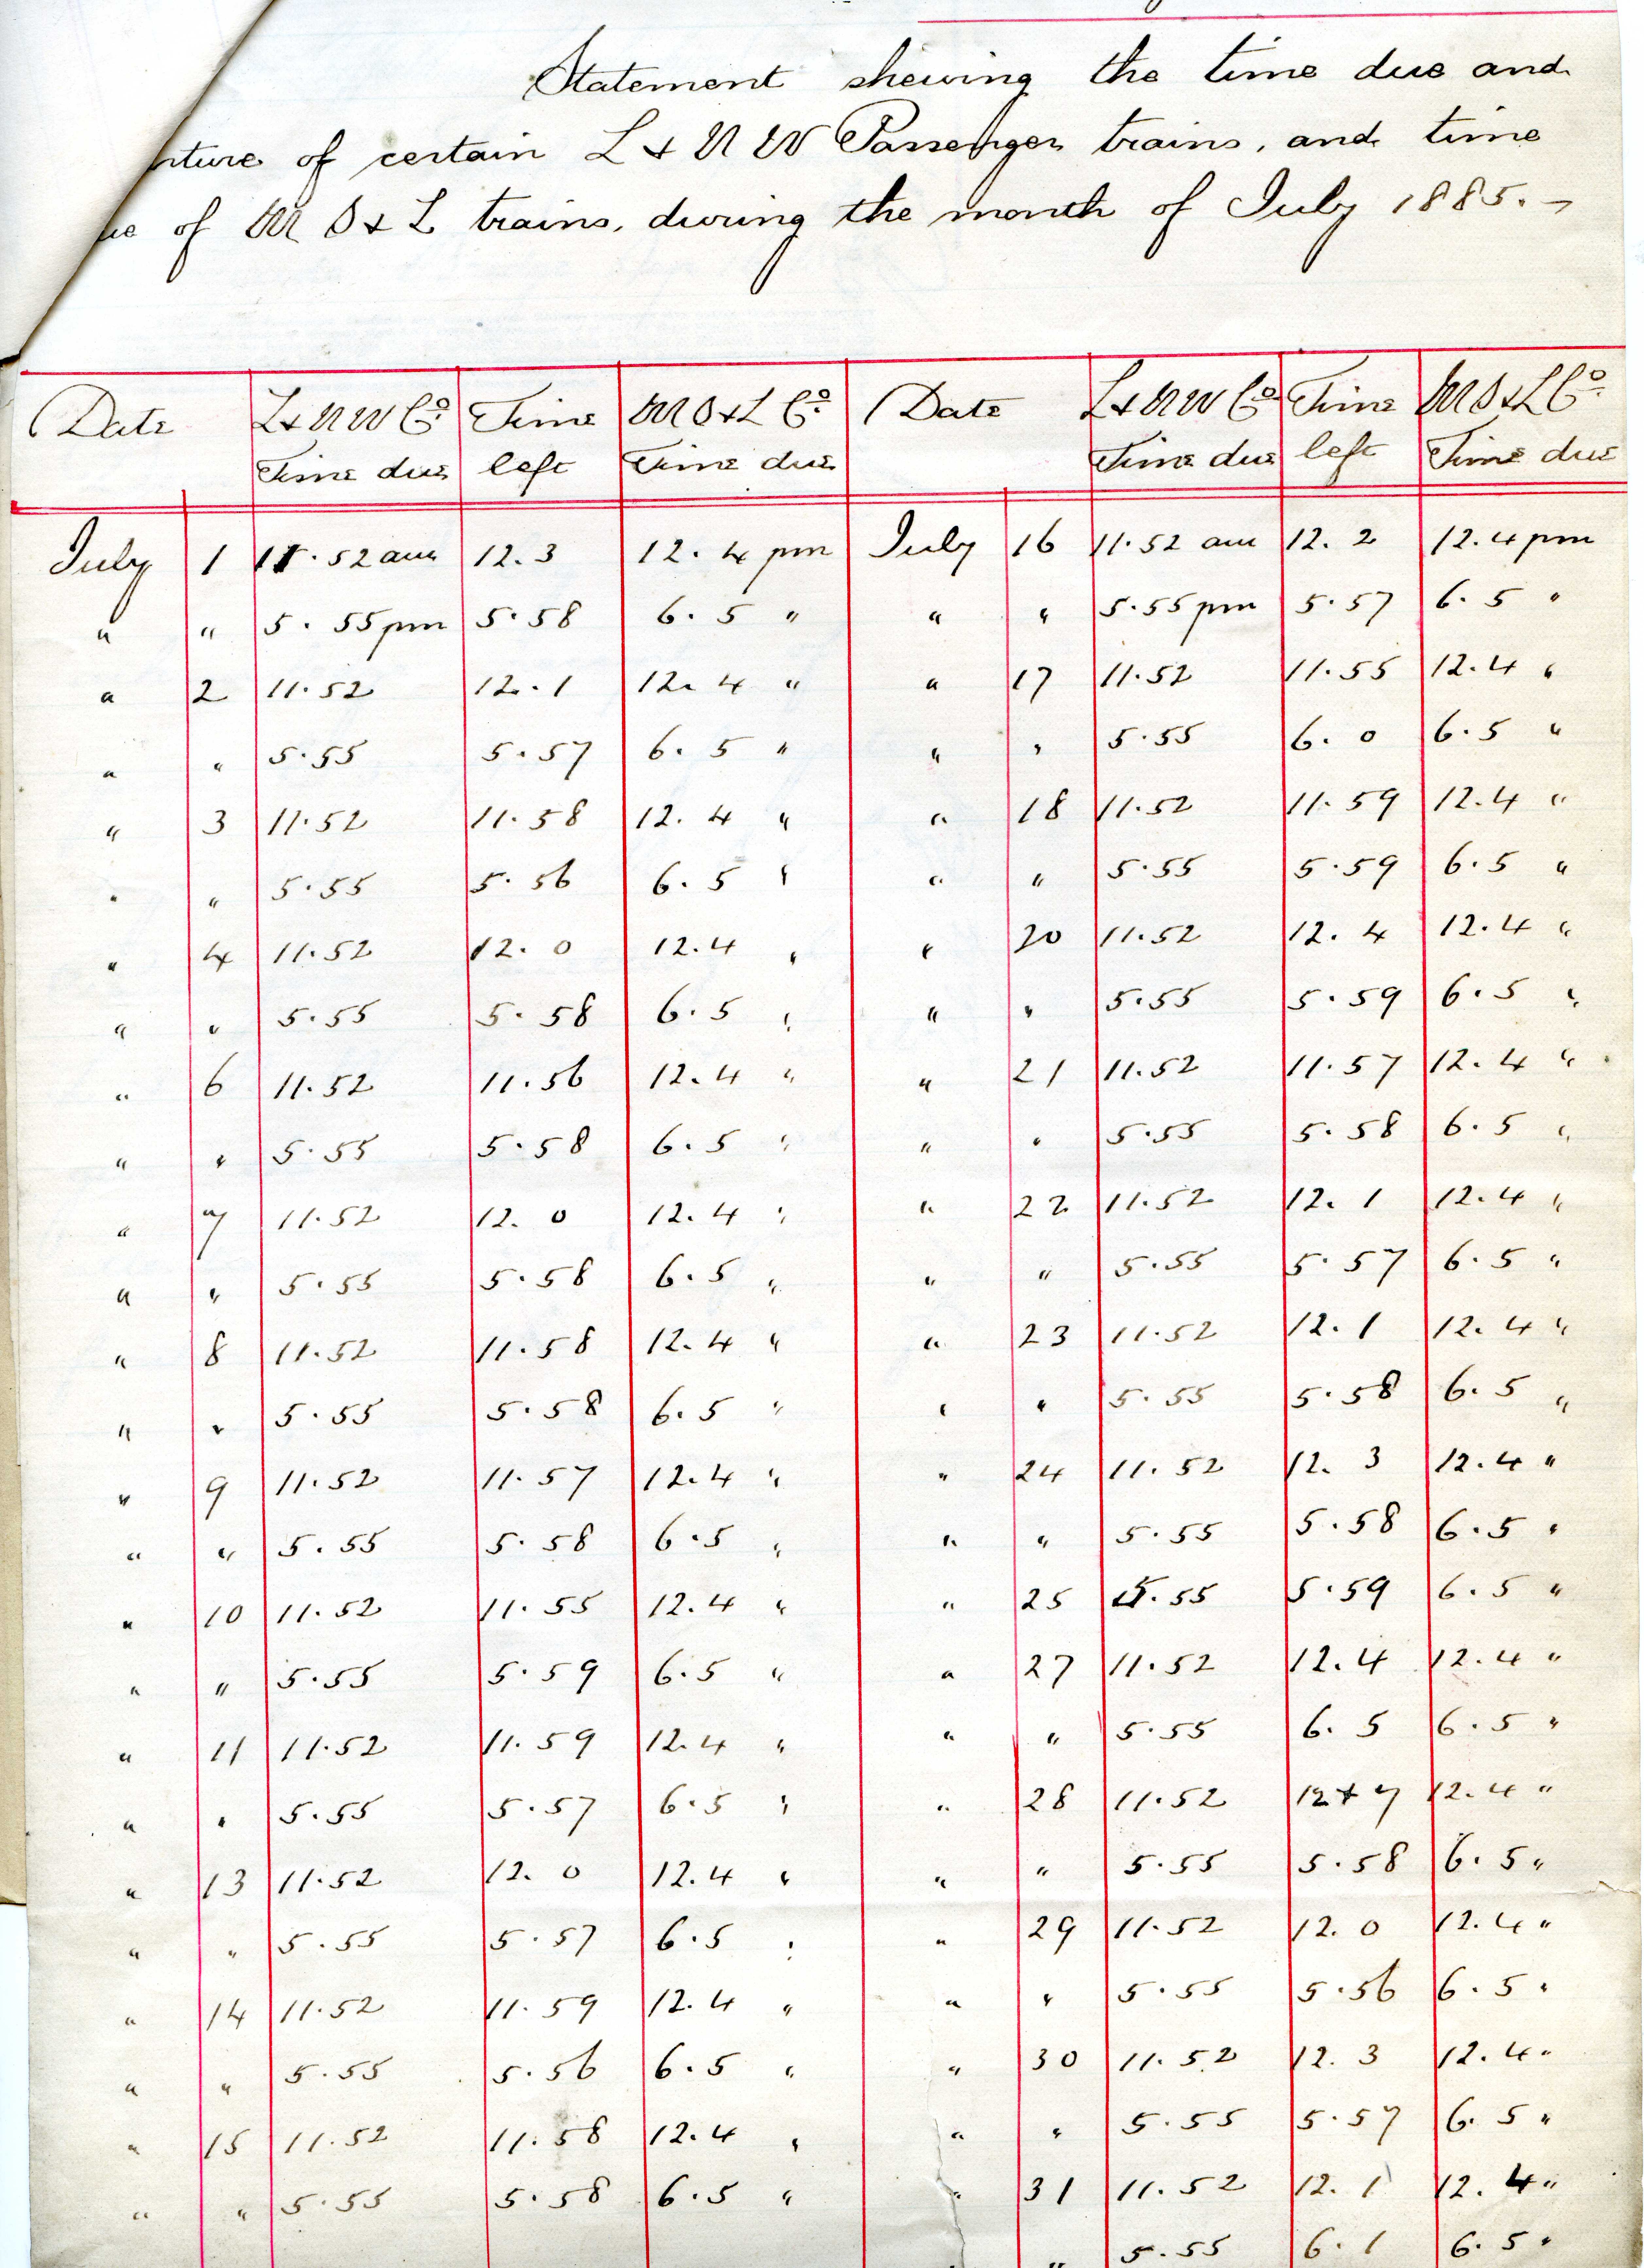 Statement shewing the time due and
ture of certain L & N W Passenger trains, and time
of M S & L trains, during the month of July 1885. -
Date L & N W Co Time M S & L Co Date L & N W Co Time M S & L Co
Time due left Time due Time due left Time due
July 1 11.52 am 12.3 12.4 pm July 16 11.52 am 12.2 12.4 pm
" " 5.55 pm 5.58 6.5 " " " 5.55 pm 5.57 6.5 "
" 2 11.52 12.1 12.4 " " 17 11.52 11.55 12.4 "
" " 5.55 5.57 6.5 " " " 5.55 6.0 6.5 "
" 3 11.52 11.58 12.4 " " 18 11.52 11.59 12.4 "
" " 5.55 5.56 6.5 " " " 5.55 5.59 6.5 "
" 4 11.52 12.0 12.4 " " 20 11.52 12.4 12.4 "
" " 5.55 5.58 6.5 " " " 5.55 5.59 6.5 "
" 6 11.52 11.56 12.4 " " 21 11.52 11.57 12.4 "
" " 5.55 5.58 6.5 " " " 5.55 5.58 6.5 "
" 7 11.52 12.0 12.4 " " 22 11.52 12.1 12.4 "
" " 5.55 5.58 6.5 " " " 5.55 5.57 6.5 "
" 8 11.52 11.58 12.4 " " 23 11.52 12.1 12.4 "
" " 5.55 5.58 6.5 " " " 5.55 5.58 6.5 "
" 9 11.52 11.57 12.4 " " 24 11.52 12.3 12.4 "
" " 5.55 5.58 6.5 " " " 5.55 5.58 6.5 "
" 10 11.52 11.55 12.4 " " 25 5.55 5.59 6.5 "
" " 5.55 5.59 6.5 " " 27 11.52 12.4 12.4 "
" 11 11.52 11.59 12.4 " " " 5.55 6.5 6.5 "
" " 5.55 5.57 6.5 " " 28 11.52 12+7 12.4 "
" 13 11.52 12.0 12.4 " " " 5.55 5.58 6.5 "
" " 5.55 5.57 6.5 " " 29 11.52 12.0 12.4 "
" 14 11.52 11.59 12.4 " " " 5.55 5.56 6.5 "
" " 5.55 5.56 6.5 " " 30 11.52 12.3 12.4 "
" 15 11.52 11.58 12.4 " " " 5.55 5.57 6.5 "
" " 5.55 5.58 6.5 " " 31 11.52 12.1 12.4 "
" " 5.55 6.1 6.5 "